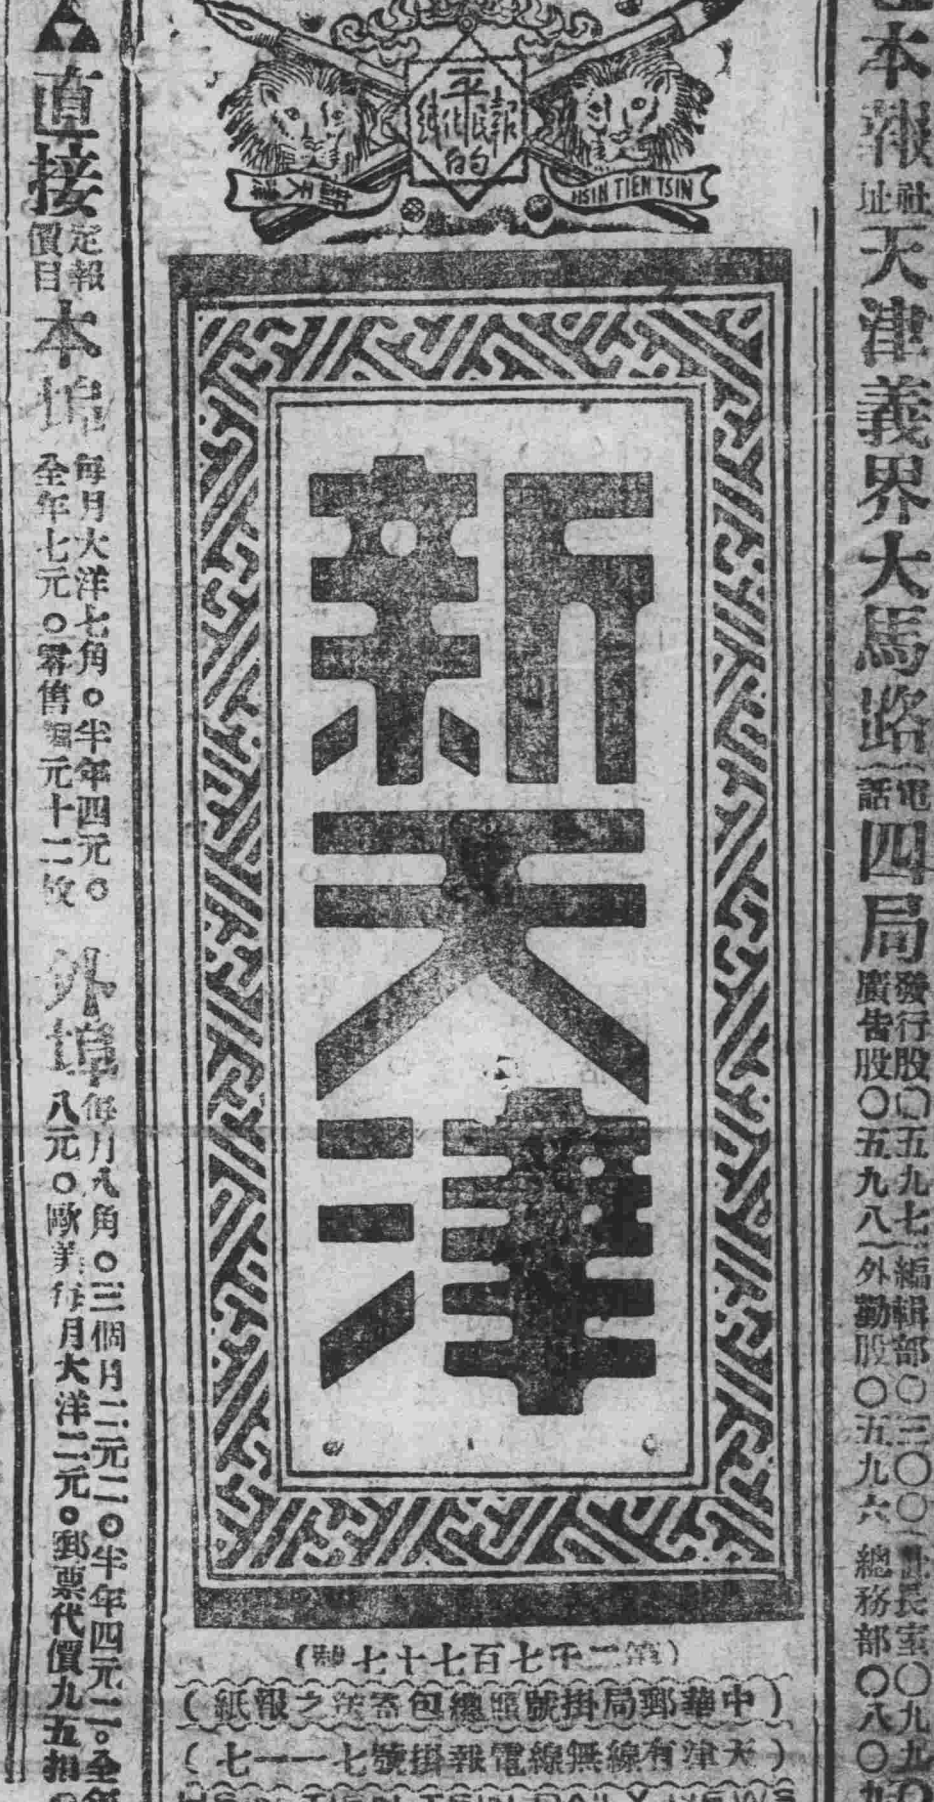 本報社址天津義界大馬路
電話四局
發行股〇五九七
廣告股〇五九八
編輯部〇三〇〇
外勤股〇五九六
社長室〇九九〇
總務部〇八〇九
平民化的報紙
新天津
HSIN TIEN TSIN
新天津
(第二千七百七十七號)
(中華郵局掛號照總包寄送之報紙)
(天津有線無線電報掛號七一一七)
HSIN TIEN TSIN DAILY NEWS
▲直接定報價目
本埠
每月大洋七角○半年四元○
全年七元○零售銅元十二枚
外埠
每月八角○三個月二元二○半年四元二○全年
八元○歐美每月大洋二元○郵票代價九五扣